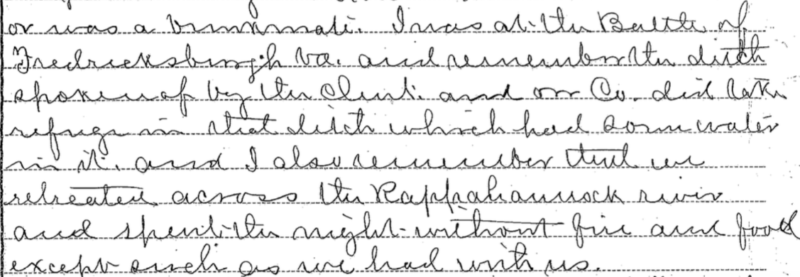 or was a bunkmate. I was at the Battle of
Fredricksburgh Va. and remember the ditch
spoken of by the Clmt. and our Co. did take
refuge in that ditch which had some water
in it. and I also remember that we
retreated across the Rappahannock river
and spent the night without fire and food
except such as we had with us.